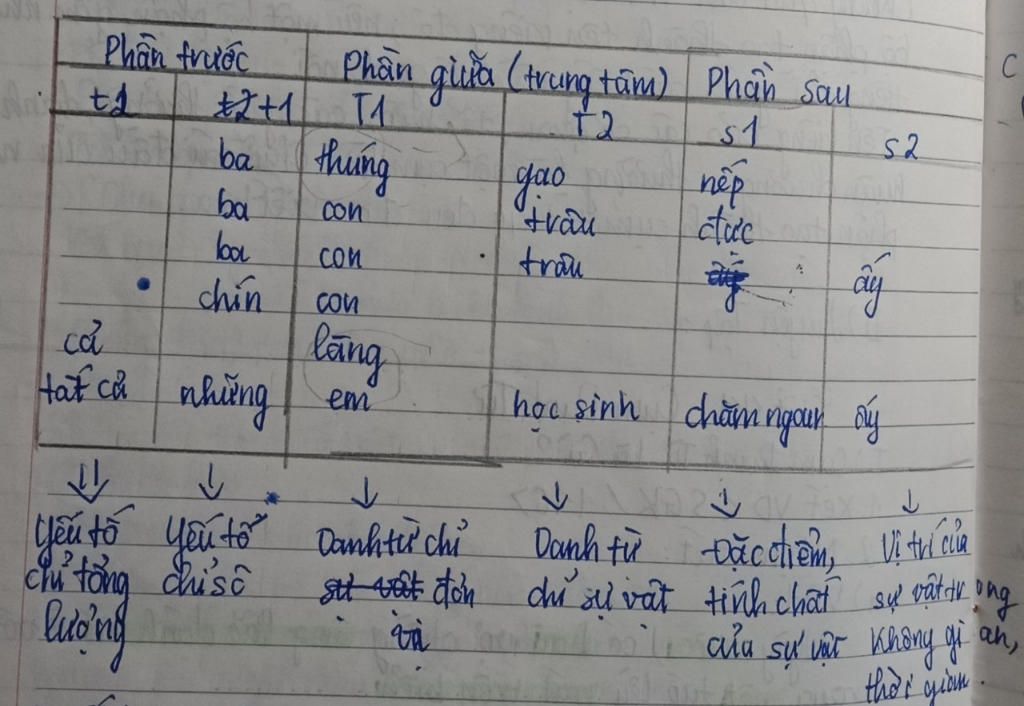 Phần trước Phần giữa (trung tâm) Phần sau
t2 t1 T1 T2 s1 s2
ba thúng gạo nếp
ba con trâu đực
ba con trâu ấy
chín con
cả làng
tất cả những em học sinh chăm ngoan ấy
↓ ↓ ↓ ↓ ↓ ↓
Yếu tố Yếu tố Danh từ chỉ Danh từ Đặc điểm, Vị trí của
chỉ tổng chỉ số sự vật đơn chỉ sự vật tính chất sự vật trong
lượng vị của sự vật không gian,
thời gian.